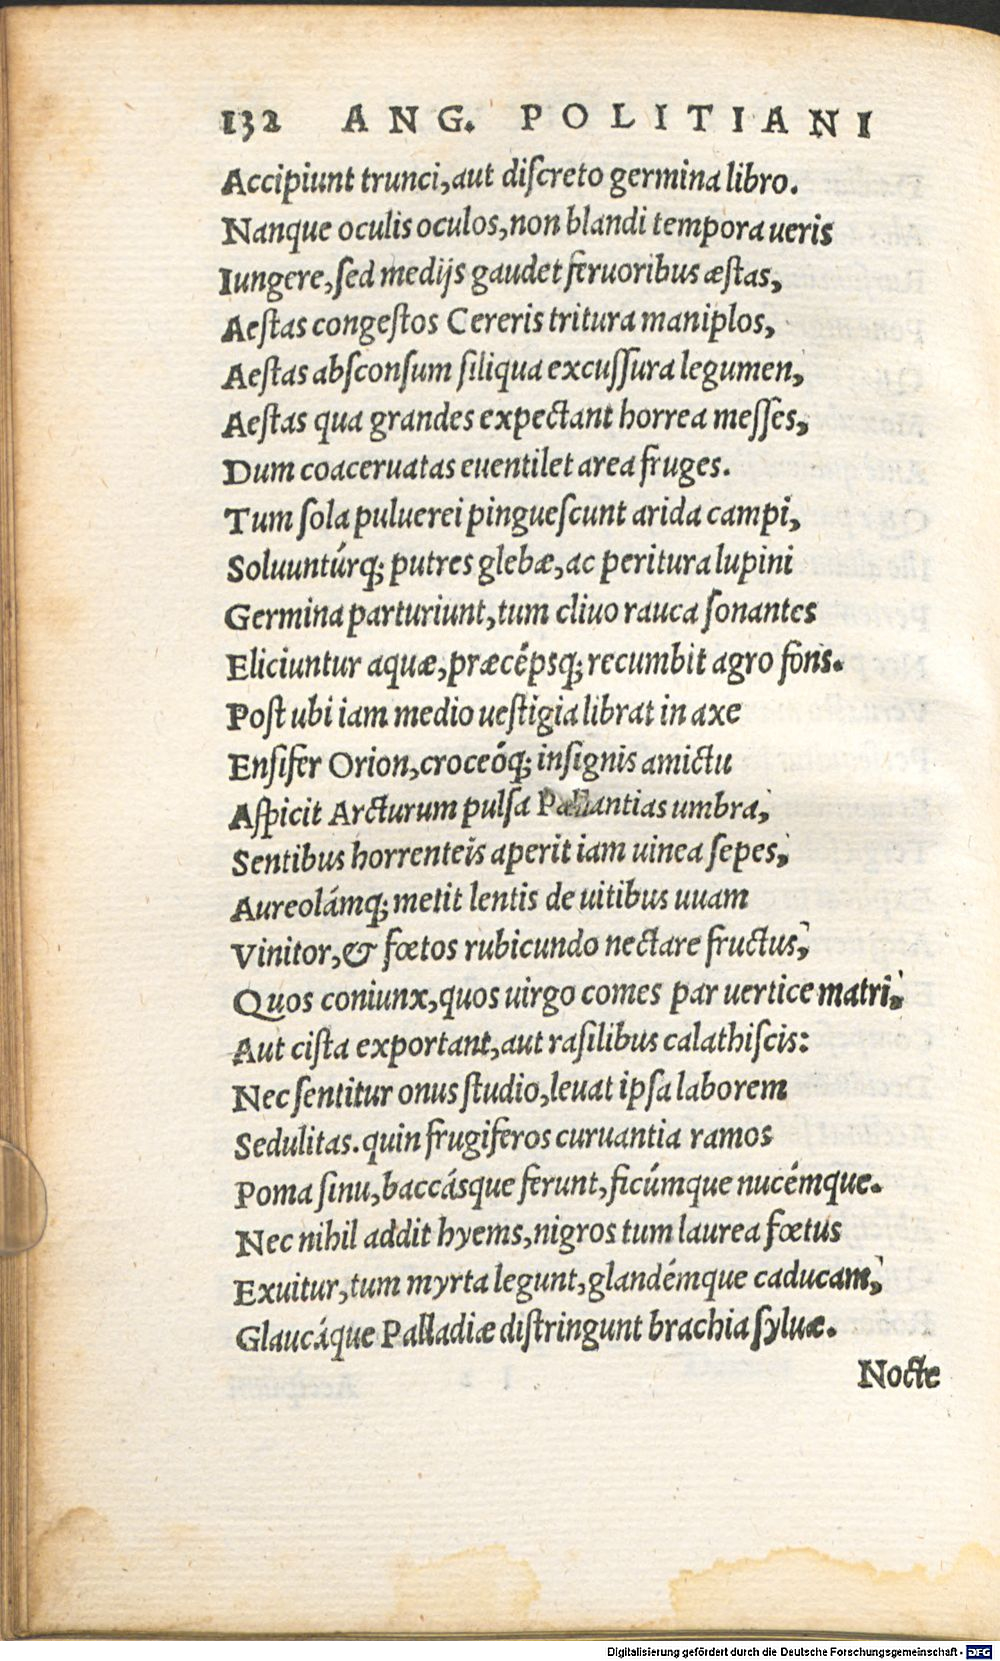 132 ANG. POLITIANI
Accipiunt trunci, aut discreto germina libro.
Nanque oculis oculos, non blandi tempora ueris
Iungere, sed medijs gaudet feruoribus æstas,
Aestas congestos Cereris tritura maniplos,
Aestas absconsum siliqua excussura legumen,
Aestas qua grandes expectant horrea messes,
Dum coaceruatas euentilet area fruges.
Tum sola puluerei pinguescunt arida campi,
Soluuntúrq; putres glebæ, ac peritura lupini
Germina parturiunt, tum cliuo rauca sonantes
Eliciuntur aquæ, præcépsq; recumbit agro fons.
Post ubi iam medio uestigia librat in axe
Ensifer Orion, croceóq; insignis amictu
Aspicit Arcturum pulsa Pallantias umbra,
Sentibus horrenteis aperit iam uinea sepes,
Aureolámq; metit lentis de uitibus uuam
Vinitor, & fœtos rubicundo nectare fructus,
Quos coniunx, quos uirgo comes par uertice matri,
Aut cista exportant, aut rasilibus calathiscis:
Nec sentitur onus studio, leuat ipsa laborem
Sedulitas. quin frugiferos curuantia ramos
Poma sinu, baccásque ferunt, ficúmque nucémque.
Nec nihil addit hyems, nigros tum laurea fœtus
Exuitur, tum myrta legunt, glandémque caducam,
Glaucáque Palladiæ distringunt brachia syluæ.
Nocte
Digitalisierung gefördert durch die Deutsche Forschungsgemeinschaft - DFG